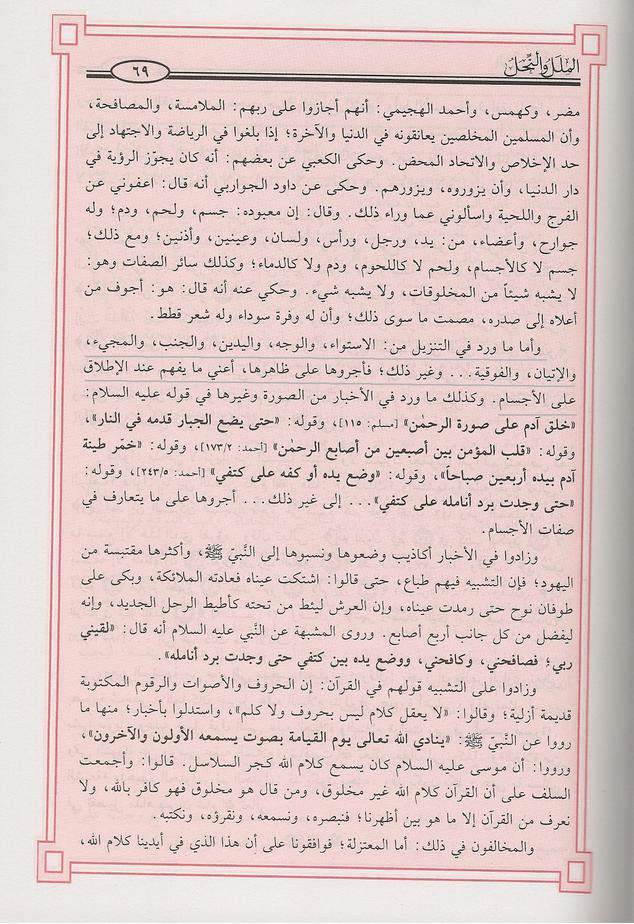 الملل والنحل
٦٩
مضر، وكهمس، وأحمد الهجيمي: أنهم أجازوا على ربهم: الملامسة، والمصافحة،
وأن المسلمين المخلصين يعانقونه في الدنيا والآخرة؛ إذا بلغوا في الرياضة والاجتهاد إلى
حد الإخلاص والاتحاد المحض. وحكى الكعبي عن بعضهم: أنه كان يجوّز الرؤية في
دار الدنيا، وأن يزوروه، ويزورهم. وحكى عن داود الجواربي أنه قال: اعفوني عن
الفرج واللحية واسألوني عما وراء ذلك. وقال: إن معبوده: جسم، ولحم، ودم؛ وله
جوارح، وأعضاء، من: يد، ورجل، ورأس، ولسان، وعينين، وأذنين؛ ومع ذلك؛
جسم لا كالأجسام، ولحم لا كاللحوم، ودم ولا كالدماء؛ وكذلك سائر الصفات وهو:
لا يشبه شيئاً من المخلوقات، ولا يشبه شيء. وحكي عنه أنه قال: هو: أجوف من
أعلاه إلى صدره، مصمت ما سوى ذلك؛ وأن له وفرة سوداء وله شعر قطط.
وأما ما ورد في التنزيل من: الاستواء، والوجه، واليدين، والجنب، والمجيء،
والإتيان، والفوقية... وغير ذلك؛ فأجروها على ظاهرها، أعني ما يفهم عند الإطلاق
على الأجسام. وكذلك ما ورد في الأخبار من الصورة وغيرها في قوله عليه السلام:
«خلق آدم على صورة الرحمٰن» [مسلم: ١١٥]، وقوله: «حتى يضع الجبار قدمه في النار»،
وقوله: «قلب المؤمن بين أصبعين من أصابع الرحمٰن» [أحمد: ١٧٣/٢]، وقوله: «خمّر طينة
آدم بيده أربعين صباحاً»، وقوله: «وضع يده أو كفه على كتفي» [أحمد: ٢٤٣/٥]، وقوله:
«حتى وجدت برد أنامله على كتفي»... إلى غير ذلك... أجروها على ما يتعارف في
صفات الأجسام.
وزادوا في الأخبار أكاذيب وضعوها ونسبوها إلى النَّبيّ ﷺ، وأكثرها مقتبسة من
اليهود؛ فإن التشبيه فيهم طباع، حتى قالوا: اشتكت عيناه فعادته الملائكة، وبكى على
طوفان نوح حتى رمدت عيناه، وإن العرش ليئط من تحته كأطيط الرحل الجديد، وإنه
ليفضل من كل جانب أربع أصابع. وروى المشبهة عن النَّبي عليه السلام أنه قال: «لقيني
ربي؛ فصافحني، وكافحني، ووضع يده بين كتفي حتى وجدت برد أنامله».
وزادوا على التشبيه قولهم في القرآن: إن الحروف والأصوات والرقوم المكتوبة
قديمة أزلية؛ وقالوا: «لا يعقل كلام ليس بحروف ولا كلم»، واستدلوا بأخبار؛ منها ما
رووا عن النَّبيّ ﷺ: «ينادي الله تعالى يوم القيامة بصوت يسمعه الأولون والآخرون»،
ورووا: أن موسى عليه السلام كان يسمع كلام الله كجر السلاسل. قالوا: وأجمعت
السلف على أن القرآن كلام الله غير مخلوق، ومن قال هو مخلوق فهو كافر بالله، ولا
نعرف من القرآن إلا ما هو بين أظهرنا؛ فنبصره، ونسمعه، ونقرؤه، ونكتبه.
والمخالفون في ذلك: أما المعتزلة؛ فوافقونا على أن هذا الذي في أيدينا كلام الله،